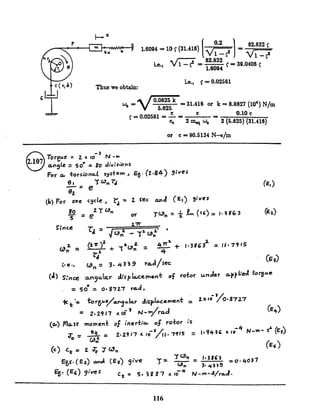 1.6094 = 10 ζ (31.416) ( 0.2 / √1 − ζ² ) = 62.832 ζ / √1 − ζ²
i.e., √1 − ζ² = 62.832 / 1.6094 ζ = 39.0406 ζ
i.e., ζ = 0.02561
Thus we obtain:
= 31.416 or k = 8.8827 (10⁴) N/m
ζ = 0.02561 =
or c = 90.5134 N-s/m
2.107
Torque = 2 x 10⁻³ N-m
angle = 50° = 80 divisions
For a torsional system, Eq. (2.84) gives
(E₁)
(b) For one cycle, τd = 2 sec and (E₁) gives
80 / 5 = e^(2 ζ ωn) or ζ ωn = ½ ln (16) = 1.3863 (E₂)
Since τd = 2π / √ωn² − ζ² ωn²,
ωn² = (2π)² / τd² + ζ² ωn² = 4π² / 4 + 1.3863² = 11.7915
i.e., ωn = 3.4339 rad/sec (E₃)
(d) Since angular displacement of rotor under applied torque
= 50° = 0.8727 rad,
kt = torque/angular displacement = 2x10⁻³/0.8727
= 2.2917 x 10⁻³ N-m/rad (E₄)
(a) Mass moment of inertia of rotor is
J₀ = kt / ωn² = 2.2917 x 10⁻³/11.7915 = 1.9436 x 10⁻⁴ N-m-s² (E₅)
(c) ct = 2 J₀ ζ ωn (E₆)
Eqs. (E₂) and (E₃) give ζ = ζ ωn / ωn = 1.3863 / 3.4339 = 0.4037
Eq. (E₆) gives ct = 5.3887 x 10⁻⁴ N-m-s/rad.
116